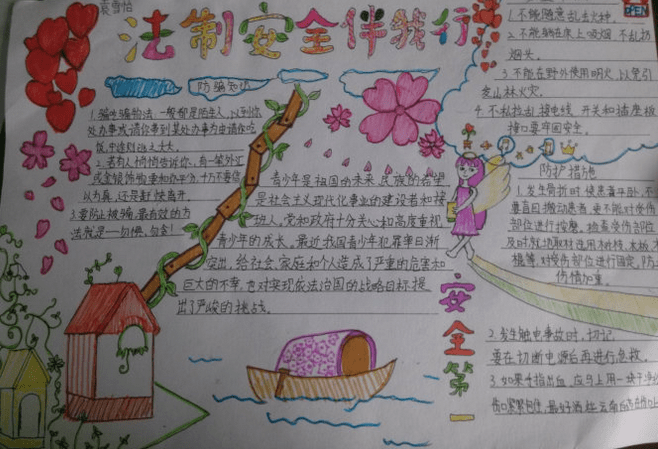 袁雪怡
法制安全伴我行
防骗知识
1.骗吃骗物法:一般都是陌生人,以到你
处办事或请你帮到某处办事为由请你吃
饭中途
2.若有人悄悄告诉你,有一笔外汇
或金银饰物要和你平分,十万不要信
以为真,还是赶快离开。
3.要防止被骗,最有效的方
法就是一勿惧,勿贪!
青少年是祖国的未来,民族的希望
是社会主义现代化事业的建设者和接
班人,党和政府十分关心和高度重视
青少年的成长。最近我国青少年犯罪率日渐
突出,给社会、家庭和个人造成了严重的危害和
巨大的不幸,也对实现依法治国的战略目标提
出了严峻的挑战。
安全第一
OPEN
1.不能随意乱丢火种。
2.不能躺在床上吸烟,不乱扔
烟头。
3.不能在野外使用明火,以免引
发山林火灾。
4.不私拉乱接电线,开关和插座板
接口要牢固安全。
防护措施
1.发生骨折时,使患者平卧,不
要盲目搬动患者,更不能对受伤
部位进行按摩。检查受伤部位
及时就地取材选用树枝、木板、木
棍等,对受伤部位进行固定,防止
伤情加重。
2.发生触电事故时,切记
要在切断电源后再进行急救。
3.如果手指出血,应马上用一块干净
伤口紧紧包住,最好洒些云南白药在伤口上